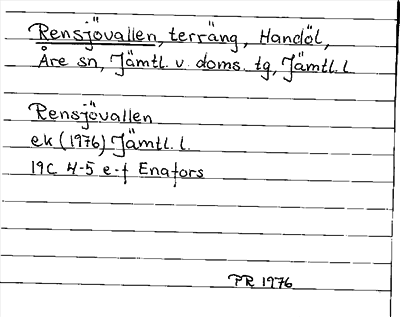 Rensjövallen, terräng, Handöl,
Åre sn, Jämtl. v. doms. tg, Jämtl. l
Rensjövallen
ek (1976) Jämtl. l.
19C 4-5 e-f Enafors
PR 1976